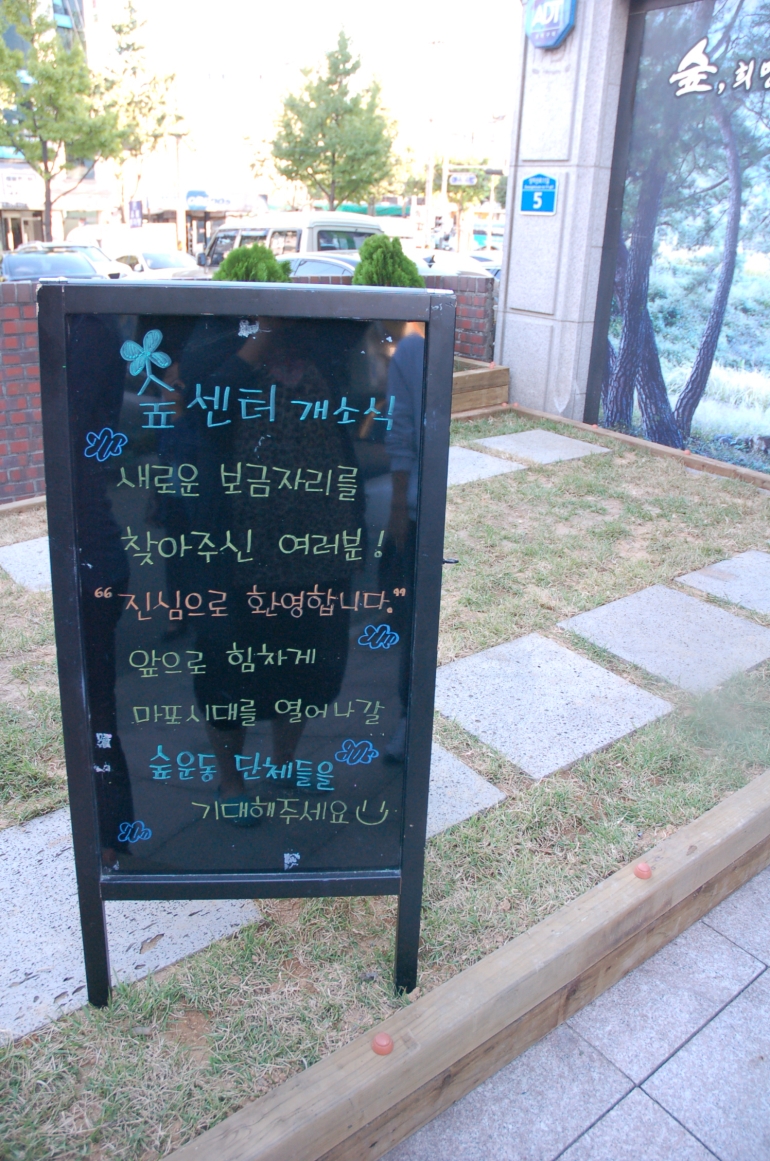 ADT
숲, 희망
5
숲센터 개소식
새로운 보금자리를
찾아주신 여러분!
“진심으로 환영합니다.”
앞으로 힘차게
마포시대를 열어나갈
숲운동 단체들을
기대해주세요